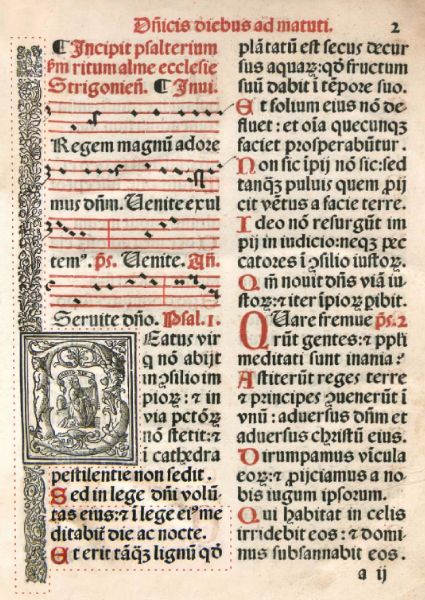 Dñicis diebus ad matuti. 2
¶ Incipit psalterium
ẜm ritum alme ecclesie
Strigonieñ. ¶ Inui.
Regem magnũ adore
mus dñm. Uenite exul
temꝰ. p̄s. Uenite. Añ.
Seruite dño. Psal. 1.
Beatus vir
q nõ abijt
in ꝯsilio im
pioꝝ: ⁊ in
via pctõꝝ
nõ stetit: ⁊
ĩ cathedra
pestilentie non sedit.
Sed in lege dñi volũ
tas eius: ⁊ ĩ lege eiꝰ me
ditabiť die ac nocte.
Et erit tãqꝫ lignũ qď
plãtatũ est secus decur
sus aquaꝝ: qď fructum
suũ dabit ĩ tẽpore suo.
Et folium eius nõ de
fluet: et oĩa quecunqꝫ
faciet prosperabũtur.
Non sic ĩpij nõ sic: sed
tanqꝫ puluis quem ꝓij
cit vẽtus a facie terre.
Ideo nõ resurgũt im
pij in iudicio: neqꝫ pec
catores ĩ ꝯsilio iustoꝝ.
Qm̃ nouit dñs viã iu
stoꝝ: ⁊ iter ĩpioꝝ pibit.
Quare fremue p̄s. 2
rũt gentes: ⁊ ppli
meditati sunt inania?
Astiterũt reges terre
⁊ principes ꝯuenerũt ĩ
vnũ: aduersus dñm et
aduersus christũ eius.
Dirumpamus vĩcula
eoꝝ: ⁊ ꝓijciamus a no
bis iugum ipsorum.
Qui habitat in celis
irridebit eos: ⁊ domi
nus subsannabit eos.
a ij